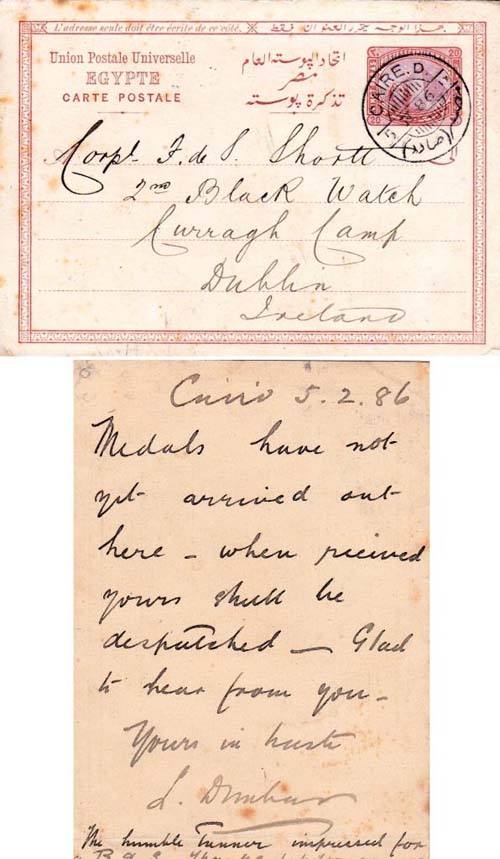 L'adresse seule doit être écrite de ce côté. هذا الوجه يحرر العنوان فقط
Union Postale Universelle
EGYPTE
CARTE POSTALE
اتحاد البوسته العام
مصر
تذكرة بوسته
20
20
CAIRE. D.
86
Corpl. F. de S. Shortt
2nd Black Watch
Curragh Camp
Dublin
Ireland
Cairo 5.2.86
Medals have not
yet arrived out
here - when received
yours shall be
despatched - Glad
to hear from you -
Yours in haste
L. Dunbar
The humble Tanner impressed for